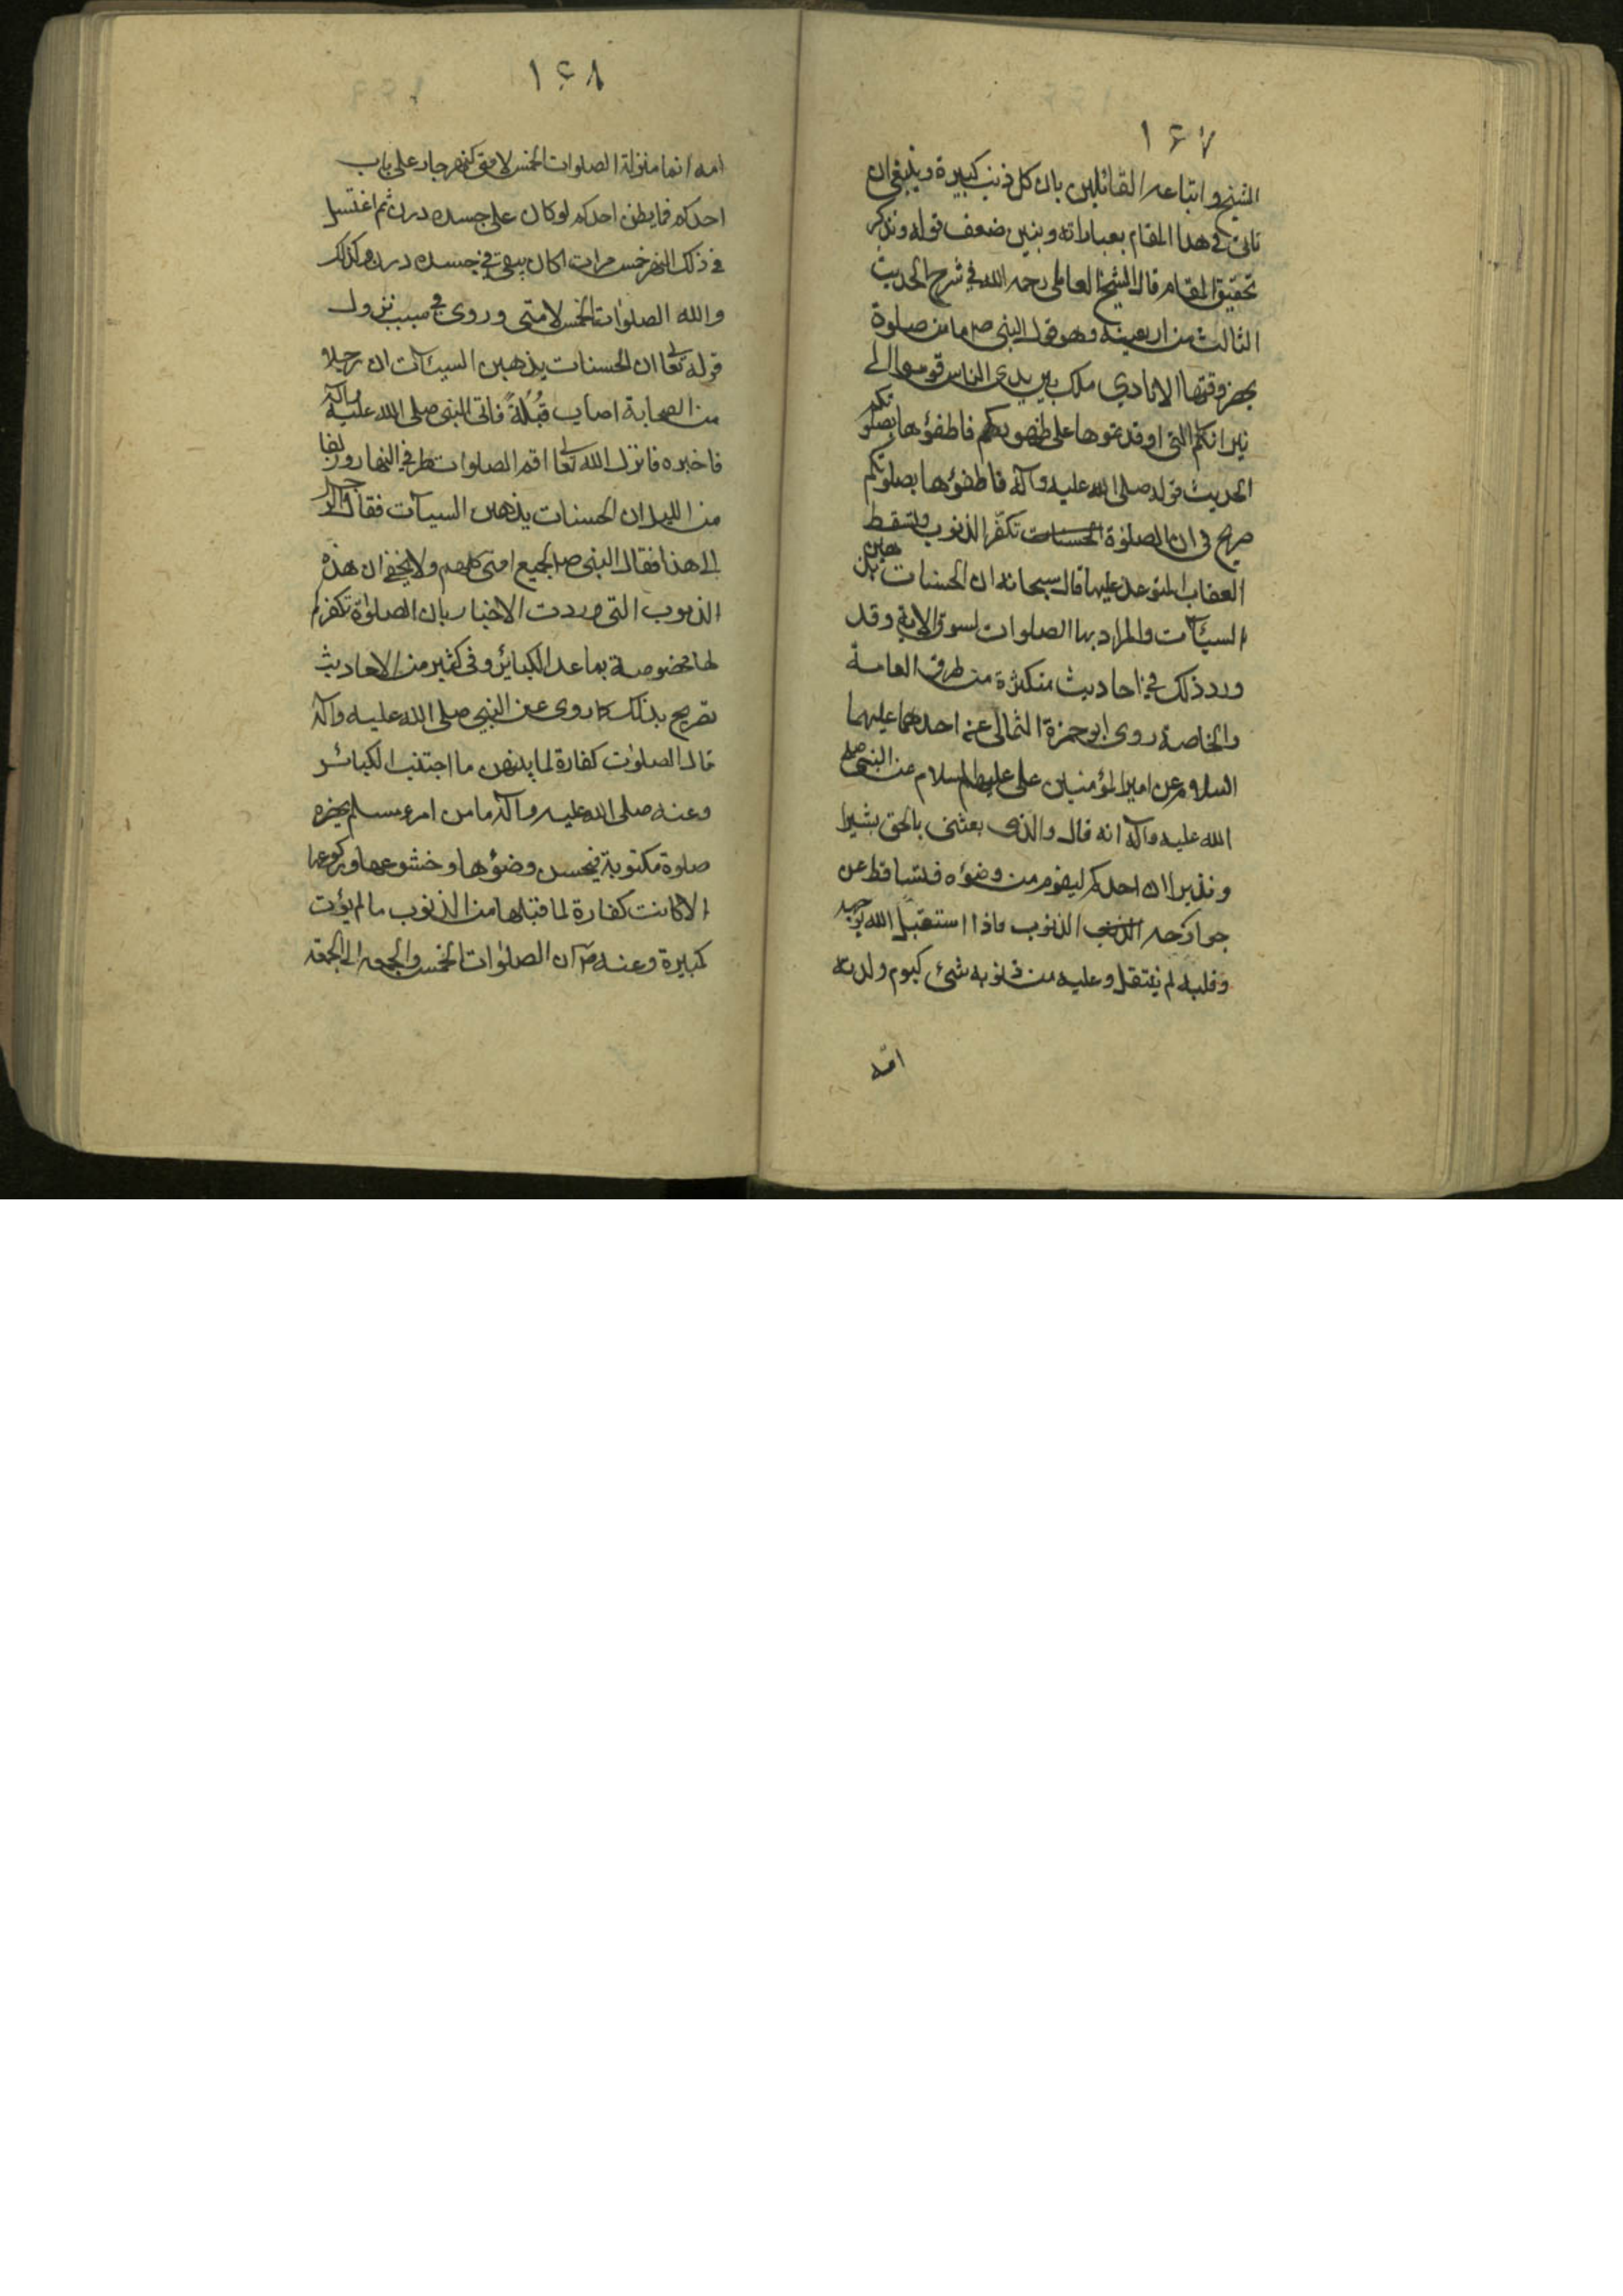 ١٦٧
الشيخ واتباعه القائلين بان كل ذنب كبيرة وينبغي ان
ناتي في هذا المقام بعباراته ونبين ضعف قوله ونذكر
تحقيق المقام قال الشيخ العاملي رحمه الله في شرح الحديث
الثالث من اربعينه وهو قول النبي ص ما من صلوة
يحضر وقتها الا نادي ملك بين يدي الناس قوموا الى
نيرانكم التي اوقدتموها على ظهوركم فاطفؤها بصلوتكم
الحديث قوله صلى الله عليه وآله فاطفؤها بصلوتكم
صريح في ان الصلوة الحسنات تكفر الذنوب وتسقط
العقاب المتوعد عليها قال سبحانه ان الحسنات يذهبن
السيئآت والمراد بها الصلوات لسوق الاية وقد
ورد ذلك في احاديث متكثرة من طرق العامة
والخاصة روى ابو حمزة الثمالى عن احدهما عليهما
السلام عن امير المؤمنين على عليه السلام عن النبي صلى
الله عليه وآله انه قال والذى بعثنى بالحق بشيرا
ونذيرا ان احدكم ليقوم من وضوئه فتساقط عن
جوارحه الذنب الذنوب فاذا استقبل الله بوجهه
وقلبه لم ينتقل وعليه من ذنوبه شئ كيوم ولدته
امّه
١٦٨
امه انما منزلة الصلوات الخمس لامتى كنهر جار على باب
احدكم فما يظن احدكم لو كان على جسده درن ثم اغتسل
في ذلك النهر خمس مرات اكان يبقى في جسده درن فكذلك
والله الصلوات الخمس لامتى وروى في سبب نزول
قوله تعالى ان الحسنات يذهبن السيئآت ان رجلا
من الصحابة اصاب قُبُلةً فاتى النبي صلى الله عليه وآله
فاخبره فانزل الله تعالى اقم الصلوات طرفي النهار وزلفا
من الليل ان الحسنات يذهبن السيآت فقال الرجل
الى هذا فقال النبى ص لجميع امتى كلهم ولا يخفى ان هذه
الذنوب التى وردت الاخبار بان الصلوة تكفرة
لها مخصوصة بما عد الكبائر وفى كثير من الاحاديث
تصريح بذلك كما روى عن النبي صلى الله عليه وآله
قال الصلوات كفارة لما بينهن ما اجتنب الكبائر
وعنه صلى الله عليه وآله ما من امرء مسلم يحضره
صلوة مكتوبة فيحسن وضوءها وخشوعها وركوعها
الا كانت كفارة لما قبلها من الذنوب ما لم يؤت
كبيرة وعنه ص ان الصلوات الخمس والجمعه الى الجمعة